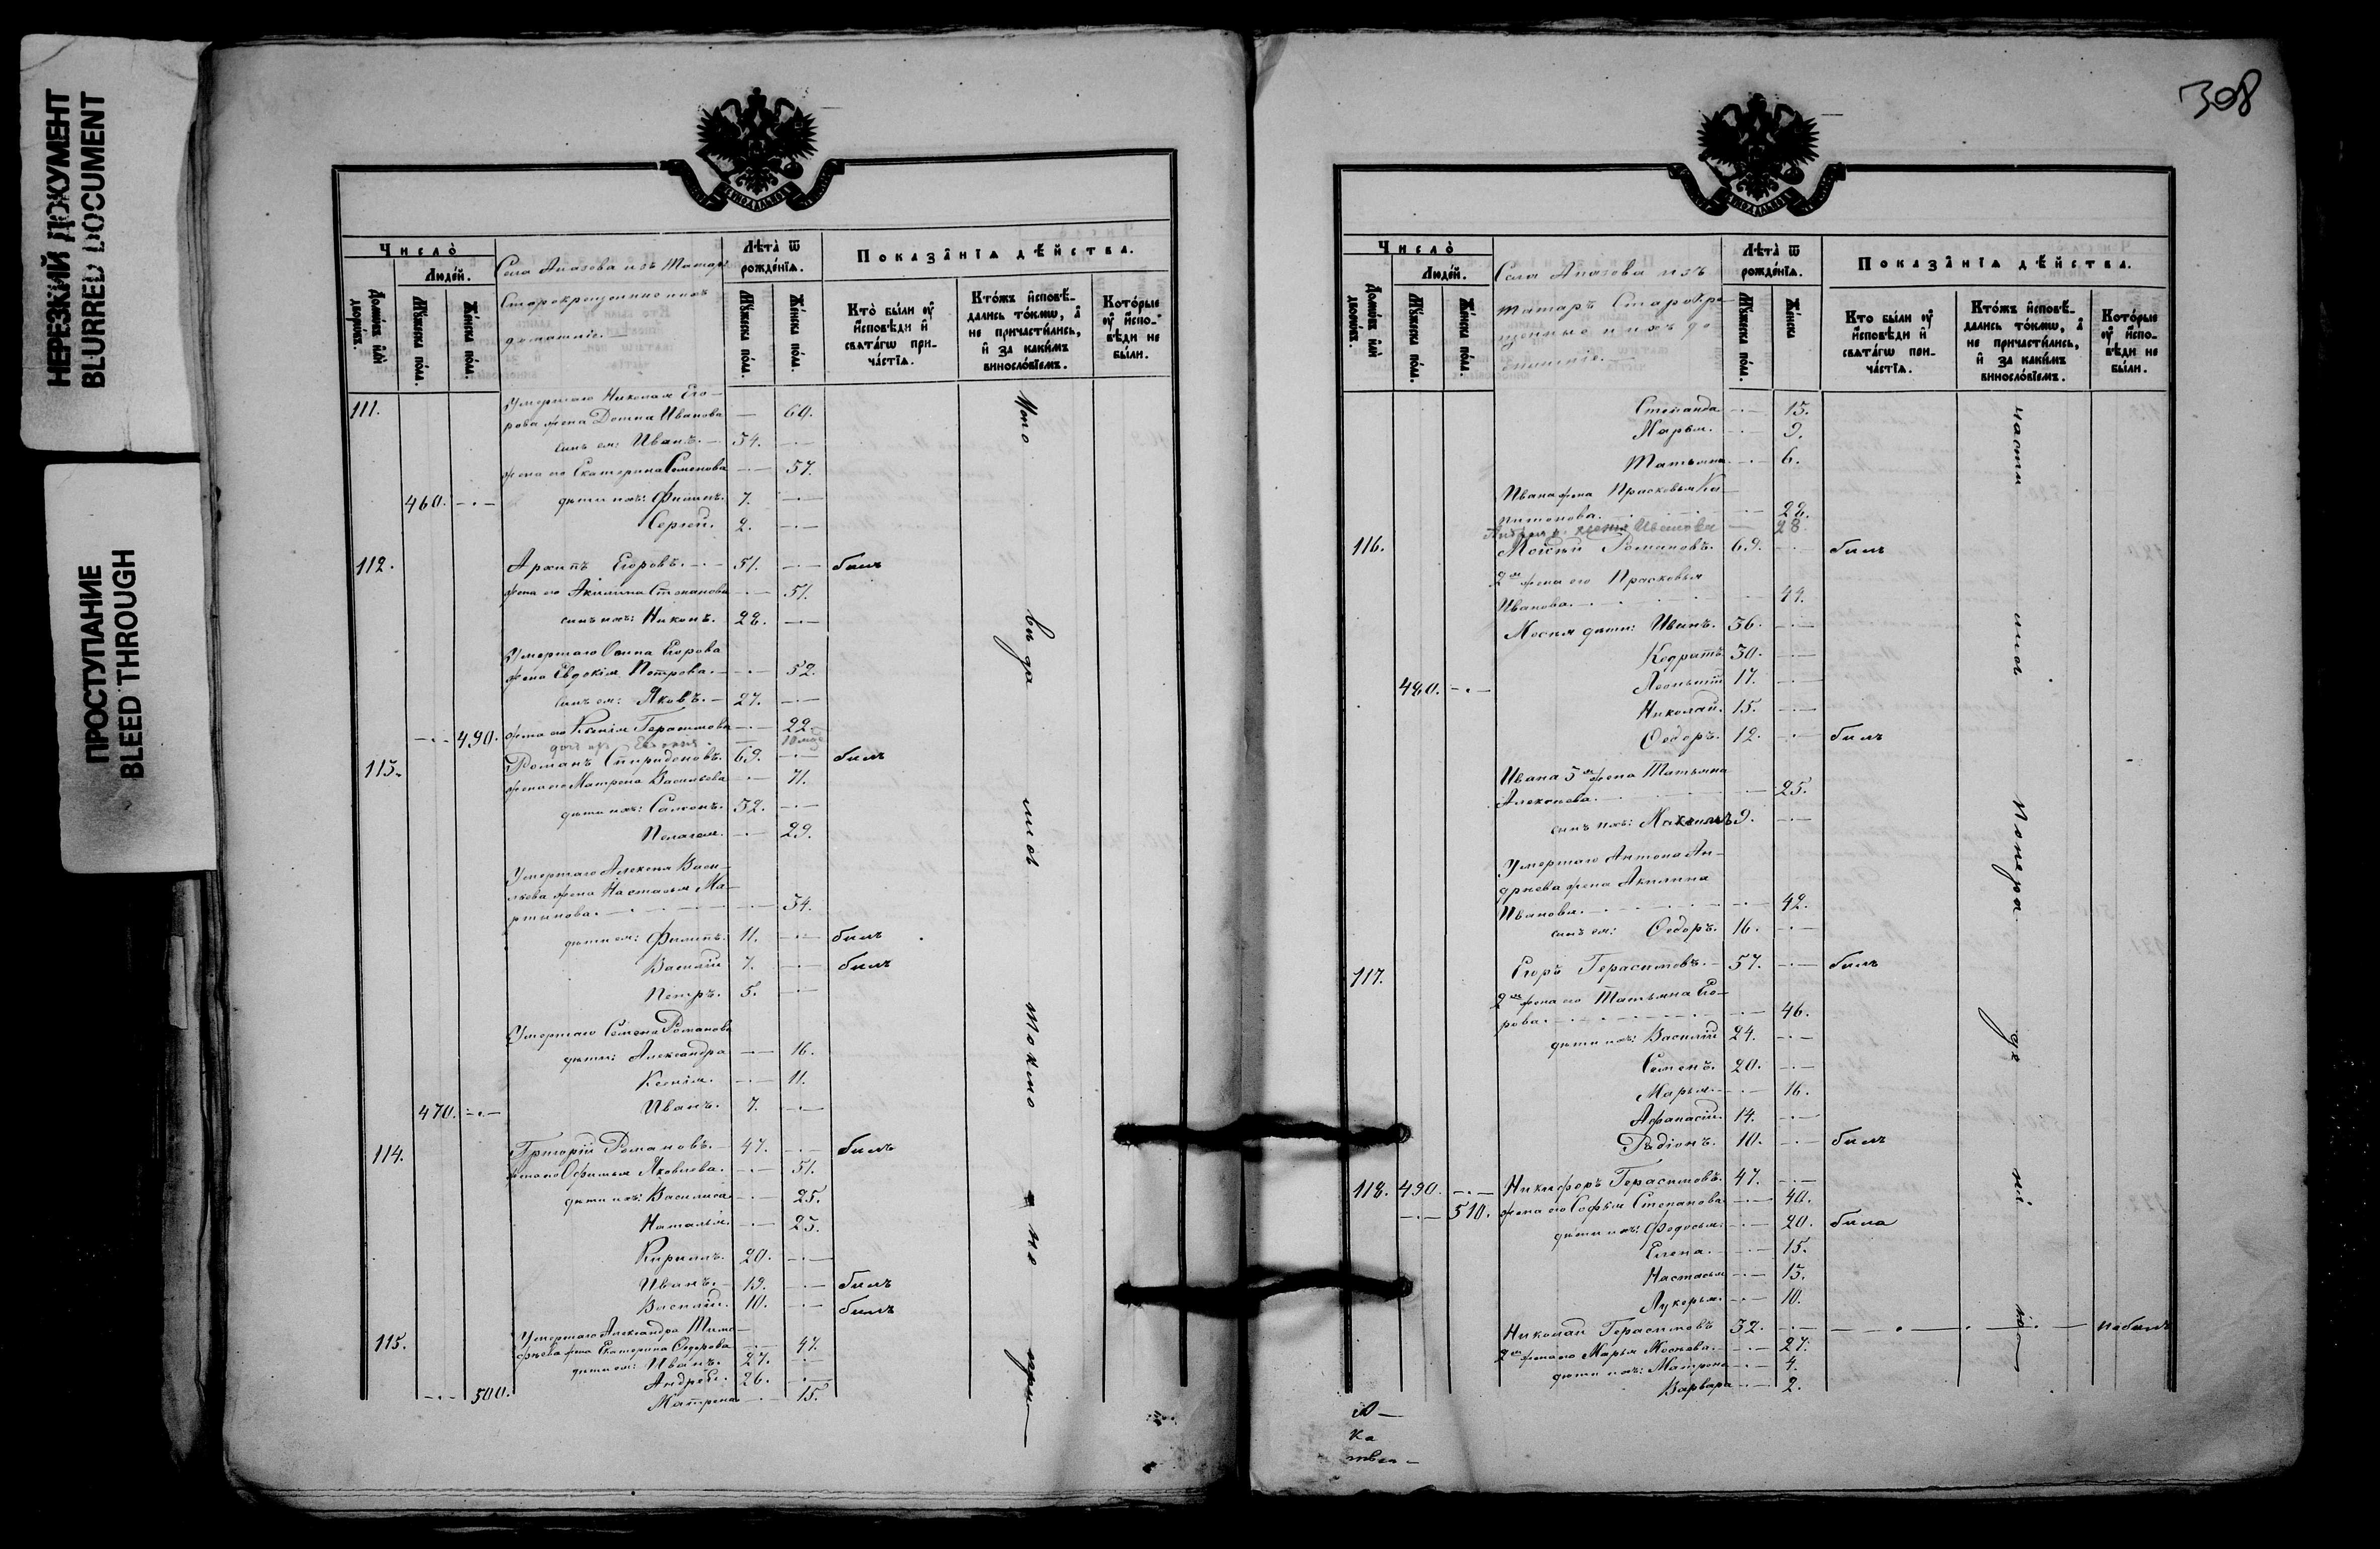 НЕРЕЗКИЙ ДОКУМЕНТ
BLURRED DOCUMENT
ПРОСТУПАНИЕ
BLEED THROUGH
Число̀
Людѐй.
Домѡвъ илѝ дворѡвъ.
Мꙋжеска пола.
Женска пола.
Села Апазова изъ Татаръ
Старокрещенные и ихъ
домашніе.
Лѣта̀ ѿ рождѐнїѧ.
Мꙋжеска пола.
Женска пола.
Показа̑нїѧ дѣ́йства.
Кто̀ были ѹ҆ и҆сповѣди и҆ свѧта́гѡ при-ча́стїѧ.
Кто́жъ и҆сповѣ́-дались то́кмѡ, а҆ не причасти́лись, и҆ за каки́мъ винослѡ́вїемъ.
Кото́рые ѹ҆ и҆спо-вѣди не бы́ли.
111. Умершаго Николая Его-
рова жена Домна Иванова — 69.
сынъ ея: Иванъ. — 54. —
жена его Екатерина Семенова — 57.
460. дѣти ихъ: Филипъ. 7. —
Сергѣй. 2. —
112. Архипъ Егоровъ. — 51. — былъ
жена его Акилина Степанова — 51.
сынъ ихъ: Никонъ. 22. —
Умершаго Осипа Егорова
жена Евдокія Петрова. — 52.
сынъ ея: Яковъ. — 27. —
490. жена его Ксенія Герасимова — 22.
113. Романъ Спиридоновъ. 69. — былъ
жена его Матрена Васильева — 71.
дѣти ихъ: Самонъ. 32. —
Пелагея. — 29.
Умершаго Алексея Васи-
льева жена Настасья Ма-
ртынова. — 34.
дѣти ея: Филипъ. 11. — былъ
Василій 7. — былъ
Петръ. 5. —
Умершаго Семена Романова
дѣти: Александра — 16.
Ксенія. — 11.
470. Иванъ. 7. —
114. Григорій Романовъ. 47. — былъ
жена его Офимья Яковлева. — 51.
дѣти ихъ: Василиса — 25.
Наталья. — 23.
Кирилъ. 20. —
Иванъ. 13. — былъ
Василій. 10. — былъ
115. Умершаго Александра Тимо-
фѣева жена Екатерина Ѳедорова — 47.
дѣти ея: Иванъ. 27. —
Андрей. 26. —
500. Матрена — 15.
308
Число̀
Людѐй.
Домѡвъ илѝ дворѡвъ.
Мꙋжеска пола.
Женска пола.
Села Апазова изъ
татаръ Старокре-
щенные и ихъ до-
машніе.
Лѣта̀ ѿ рождѐнїѧ.
Мꙋжеска пола.
Женска
Показа̑нїѧ дѣ́йства.
Кто были ѹ҆ и҆сповѣди и҆ свѧта́гѡ при-ча́стїѧ.
Кто́жъ и҆сповѣ́-дались то́кмѡ, а҆ не причасти́лись, и҆ за каки́мъ винослѡ́вїемъ.
Кото́рые ѹ҆ и҆спо-вѣди не бы́ли.
Степанида — 13.
Марья. — 9.
Татьяна — 6.
Ивана жена Прасковья Ка-
питонова. — 22.
Андрея жена Иванова — 28.
116. Мокѣй Романовъ. 69. — былъ
2я жена его Прасковья
Иванова. — 44.
Мокея дѣти: Иванъ. 36. —
Кодратъ 30. —
480. Леонтій 17. —
Николай. 15. —
Ѳедоръ. 12. — былъ
Ивана 3я жена Татьяна
Алексеева. — 25.
сынъ ихъ: Максимъ 9. —
Умершаго Антона Ан-
дреева жена Акилина
Иванова. — 42.
сынъ ея: Ѳедоръ. 16. —
117. Егоръ Герасимовъ. — 57. — былъ
2я жена его Татьяна Его-
рова. — 46.
дѣти ихъ: Василій 24. —
Семенъ. 20. —
Марья. — 16.
Афанасій. 14. —
Радіонъ. 10. — былъ
118. 490. Никифоръ Герасимовъ. 47. —
510. жена его Софья Степанова — 40.
дѣти ихъ: Федосья. — 20. была
Елена. — 15.
Настасья — 13.
Лукерья. — 10.
Николай Герасимовъ 32. — небылъ
2я жена его Марья Мокѣева. — 27.
дѣти ихъ: Матрена — 4.
Варвара — 2.